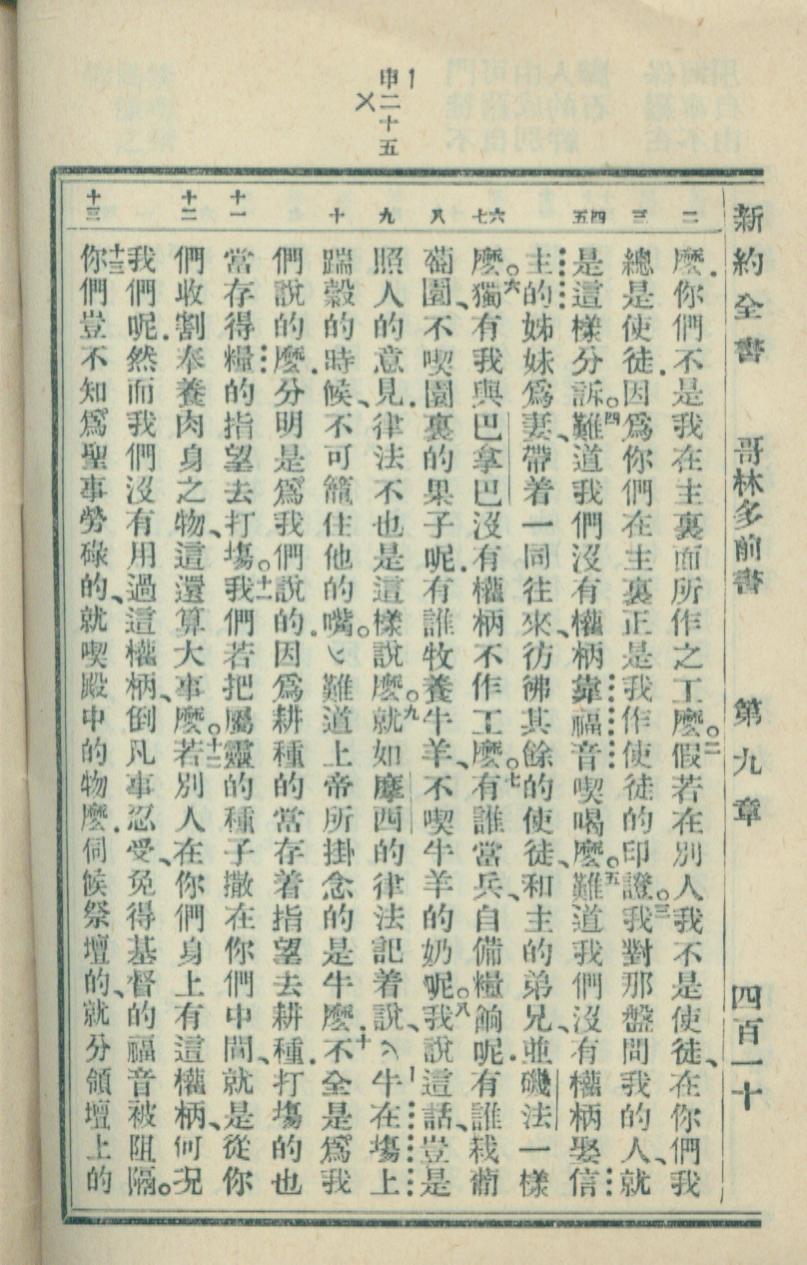 新約全書 哥林多前書 第九章 四百一十
二 三 四 五 六 七 八 九 十 十一 十二 十三
申二十五
麼.你們不是我在主裏面所作之工麼。二假若在別人我不是使徒、在你們我
總是使徒.因爲你們在主裏正是我作使徒的印證。三我對那盤問我的人、就
是這樣分訴。四難道我們沒有權柄靠福音喫喝麼。五難道我們沒有權柄娶信
主的姊妹爲妻、帶着一同往來、彷彿其餘的使徒、和主的弟兄、並磯法一樣
麼。六獨有我與巴拿巴沒有權柄不作工麼。七有誰當兵、自備糧餉呢.有誰栽葡
萄園、不喫園裏的果子呢.有誰牧養牛羊、不喫牛羊的奶呢。八我說這話、豈是
照人的意見.律法不也是這樣說麼。九就如摩西的律法記着說、牛在場上
踹穀的時候、不可籠住他的嘴。難道上帝所掛念的是牛麼.十不全是爲我
們說的麼.分明是爲我們說的.因爲耕種的當存着指望去耕種.打場的也
當存得糧的指望去打場。十一我們若把屬靈的種子撒在你們中間、就是從你
們收割奉養肉身之物、這還算大事麼。十二若別人在你們身上有這權柄、何况
我們呢.然而我們沒有用過這權柄、倒凡事忍受、免得基督的福音被阻隔。
十三你們豈不知爲聖事勞碌的、就喫殿中的物麼.伺候祭壇的、就分領壇上的